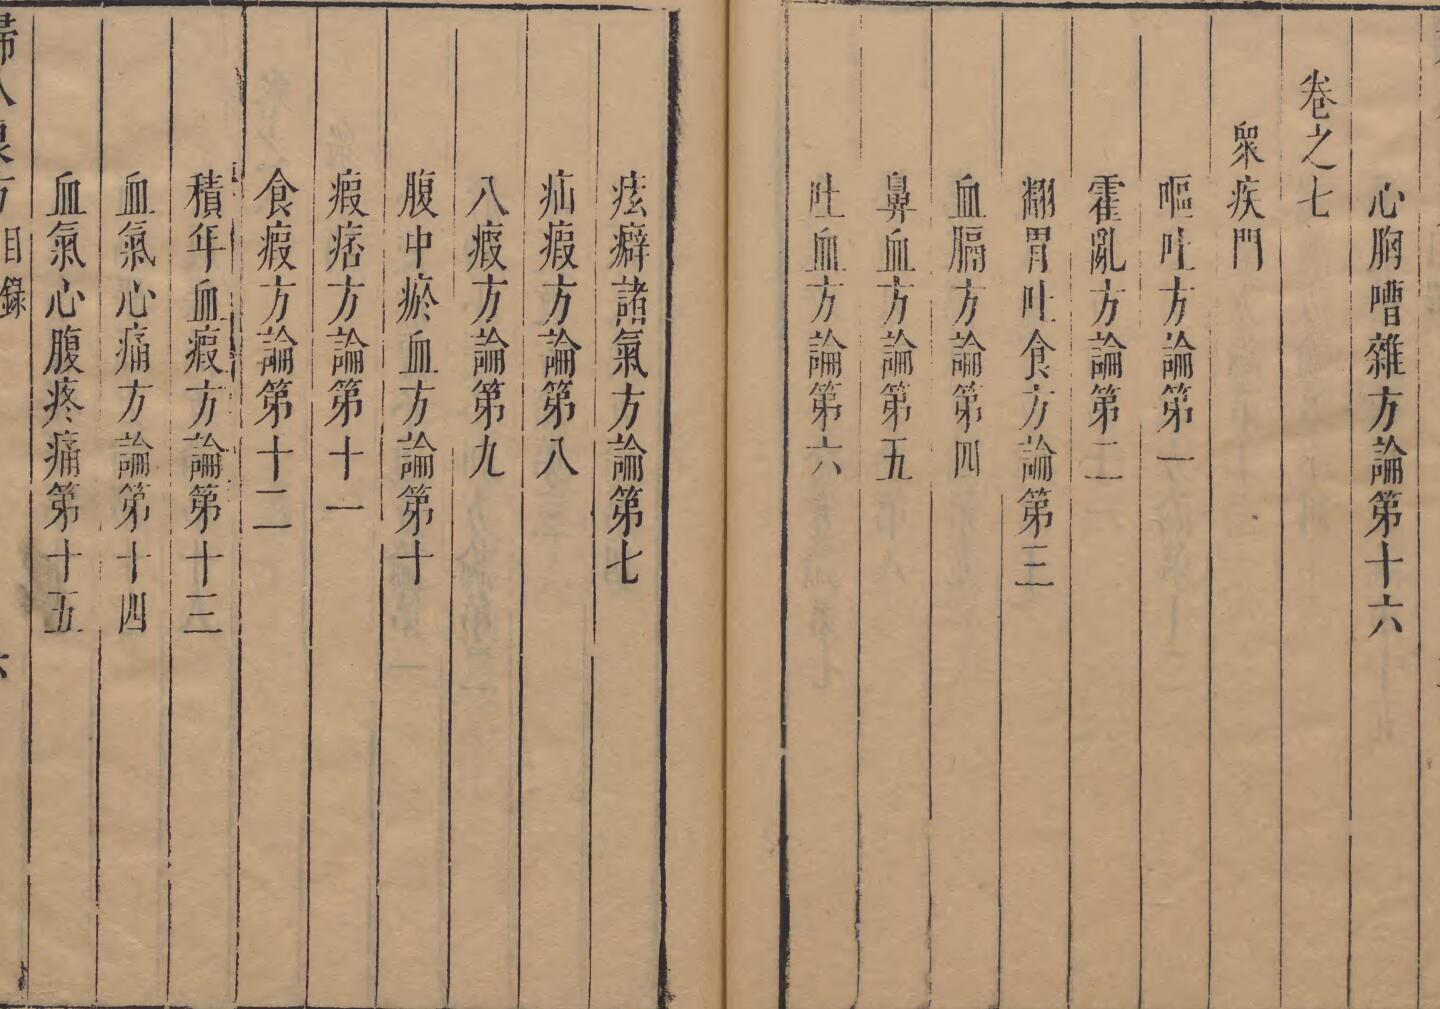 心胸嘈雜方論第十六
卷之七
衆疾門
嘔吐方論第一
霍亂方論第二
翻胃吐食方論第三
血膈方論第四
鼻血方論第五
吐血方論第六
痃癖諸氣方論第七
疝瘕方論第八
八瘕方論第九
腹中瘀血方論第十
瘕痞方論第十一
食瘕方論第十二
積年血瘕方論第十三
血氣心痛方論第十四
血氣心腹疼痛第十五
婦人良方 目錄 六